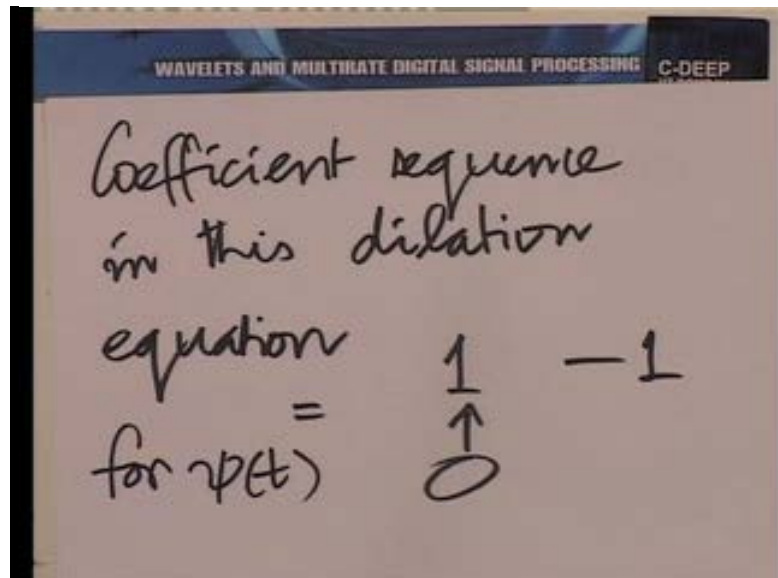 WAVELETS AND MULTIRATE DIGITAL SIGNAL PROCESSING C-DEEP
Coefficient sequence
in this dilation
equation = 1 -1
for ψ(t) ↑
0